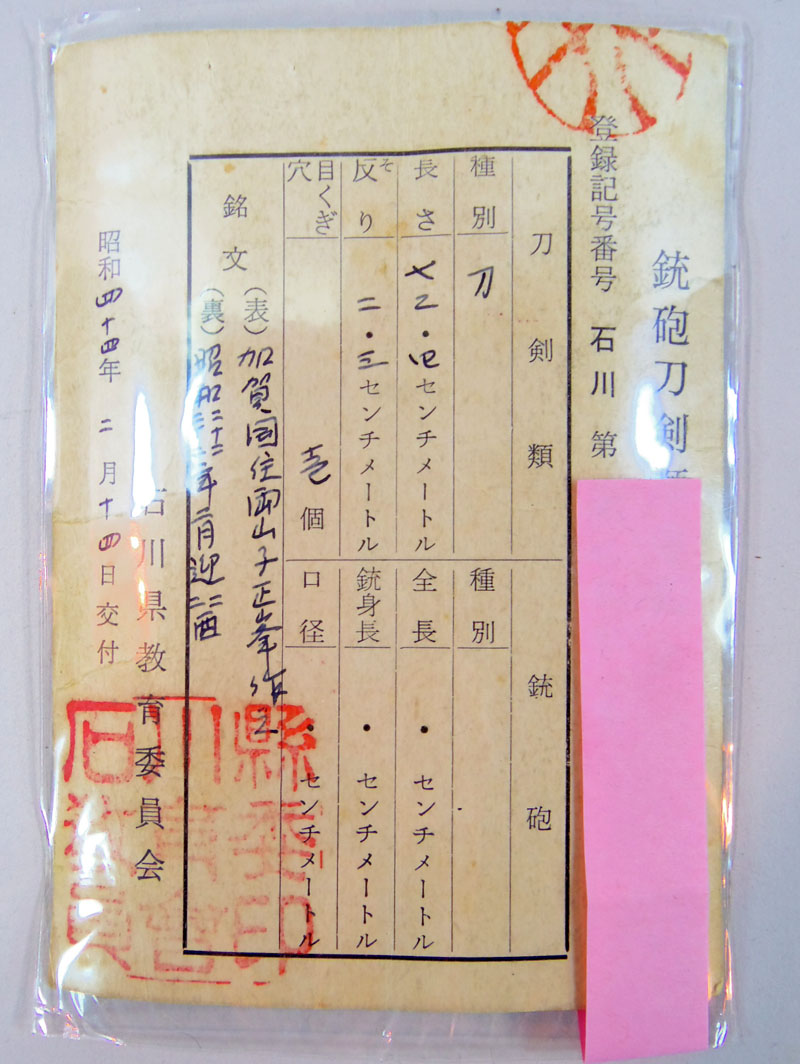 銃砲刀剣
登録記号番号 石川 第
刀剣類 銃砲
種別 刀 種別
長さ 七二・四センチメートル 全長 ・ センチメートル
反り そ 二・三センチメートル 銃身長 ・ センチメートル
目くぎ穴 壱個 口径 ・ センチメートル
銘文 (表)加賀国住両山子正峯作之
(裏)昭和 年二月迎
石川県教育委員会
昭和四十四年 二月十四日交付
石川縣教育委員會印